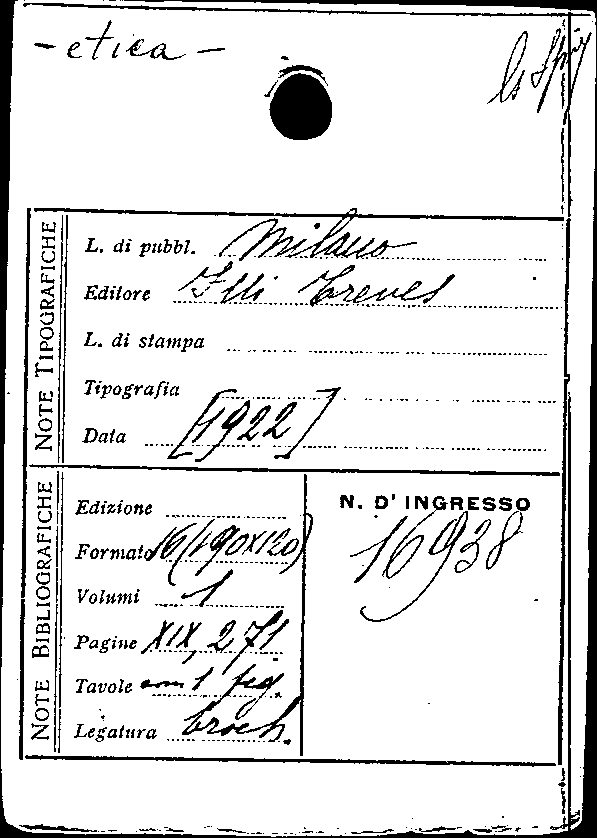 - etica -
NOTE TIPOGRAFICHE
L. di pubbl. Milano
Editore Flli Treves
L. di stampa
Tipografia
Data [1922]
NOTE BIBLIOGRAFICHE
Edizione
Formato 16 (190x120)
Volumi 1
Pagine XIX, 271
Tavole con 1 fig.
Legatura broch.
N. D' INGRESSO
16938